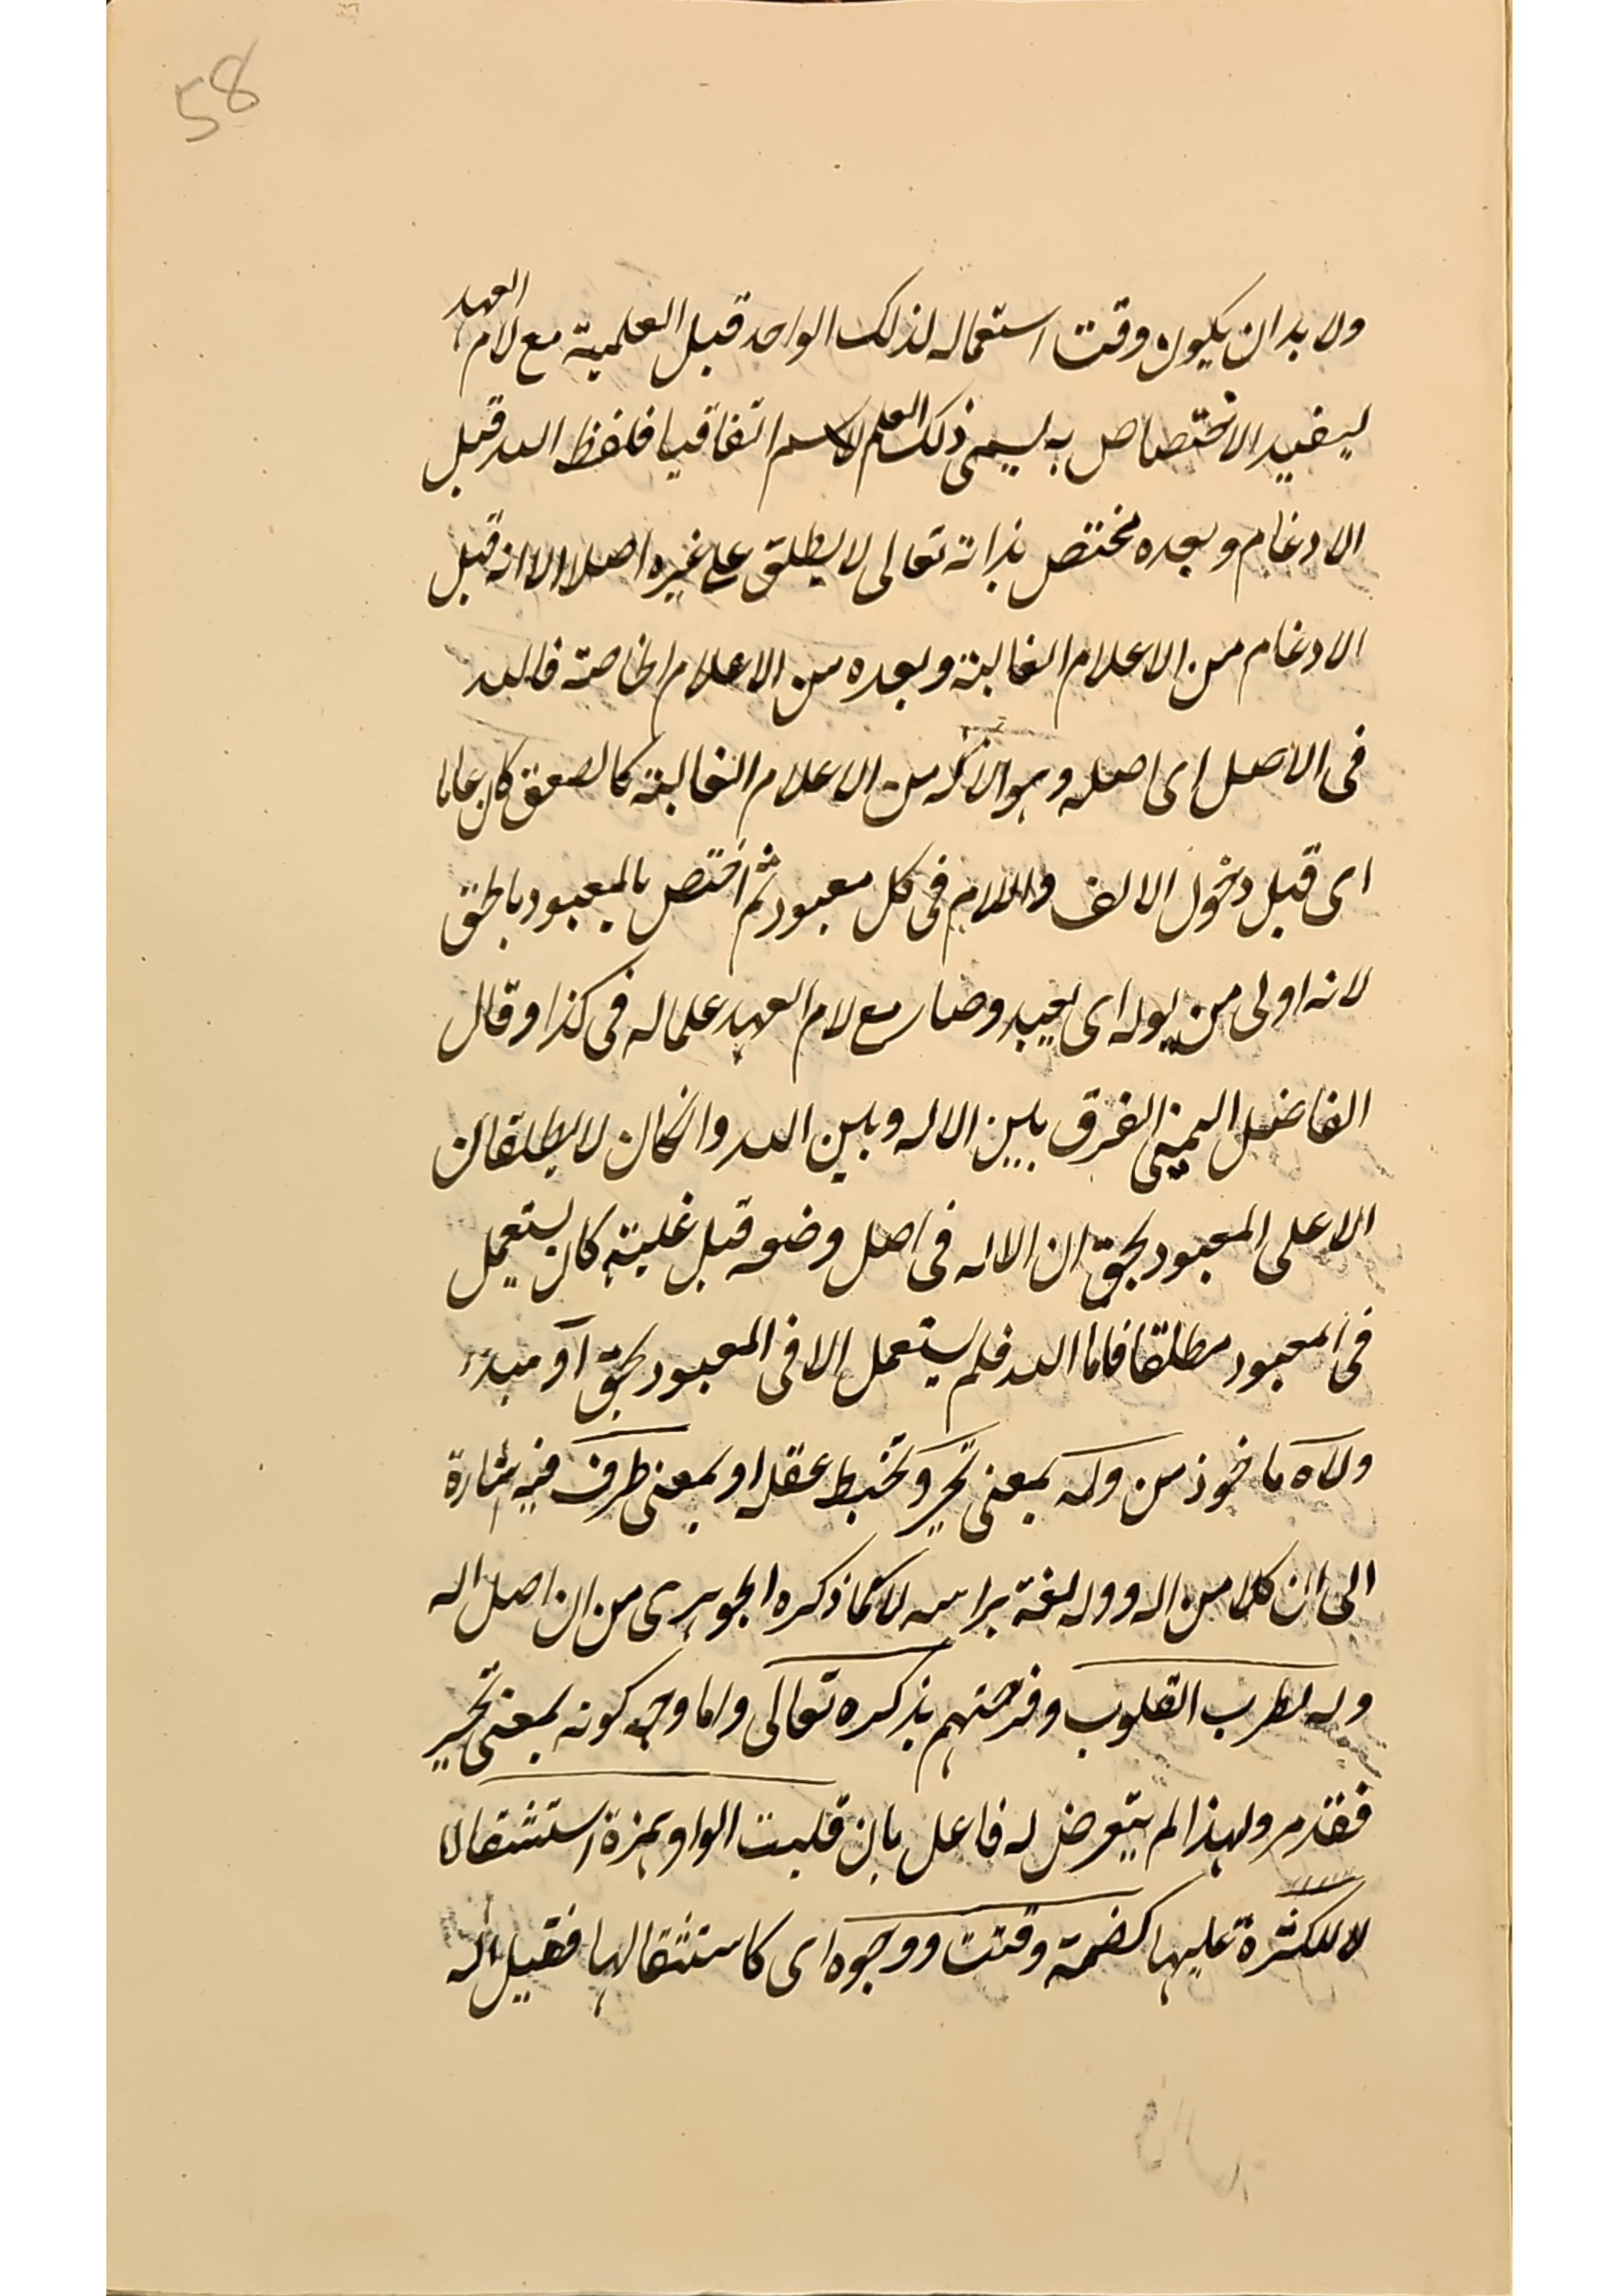 58
ولا بد ان يكون وقت استعماله لذلك الواحد قبل العلمية مع لام العهد
ليفيد الاختصاص به ليسمى ذلك العلم لاسم اتفاقيا فلفظ الله قبل
الادغام وبعده مختص بذاته تعالى لا يطلق على غيره اصلا الا انه قبل
الادغام من الاعلام الغالبة وبعده من الاعلام الخاصة فالله
فى الاصل اى اصله وهو الاله من الاعلام الغالبة كالصعق كان عاما
اى قبل دخول الالف واللام فى كل معبود ثم اختص بالمعبود بالحق
لانه اولى من يوله اى يعبد وصار مع لام العهد علما له فى كذا وقال
الفاضل اليمنى الفرق بين الاله وبين الله وان كان لا يطلقان
الا على المعبود بحق ان الاله فى اصل وضعه قبل غلبته كان يستعمل
فى المعبود مطلقا فاما الله فلم يستعمل الا فى المعبود بحق او مبدء
ولاه ماخوذ من وله بمعنى تحير وتخبط عقله او بمعنى طرف فيه اشارة
الى ان كلا من اله ووله لغة براسه لا كما ذكره الجوهرى من ان اصل اله
وله لطرب القلوب وفرحتهم بذكره تعالى واما وجه كونه بمعنى تحير
فقد مر ولهذا لم يتعرض له فاعل بان قلبت الواو همزة استثقالا
لا للكثرة عليها كضمة وقتت ووجوه اى كاستثقالها فقيل اله